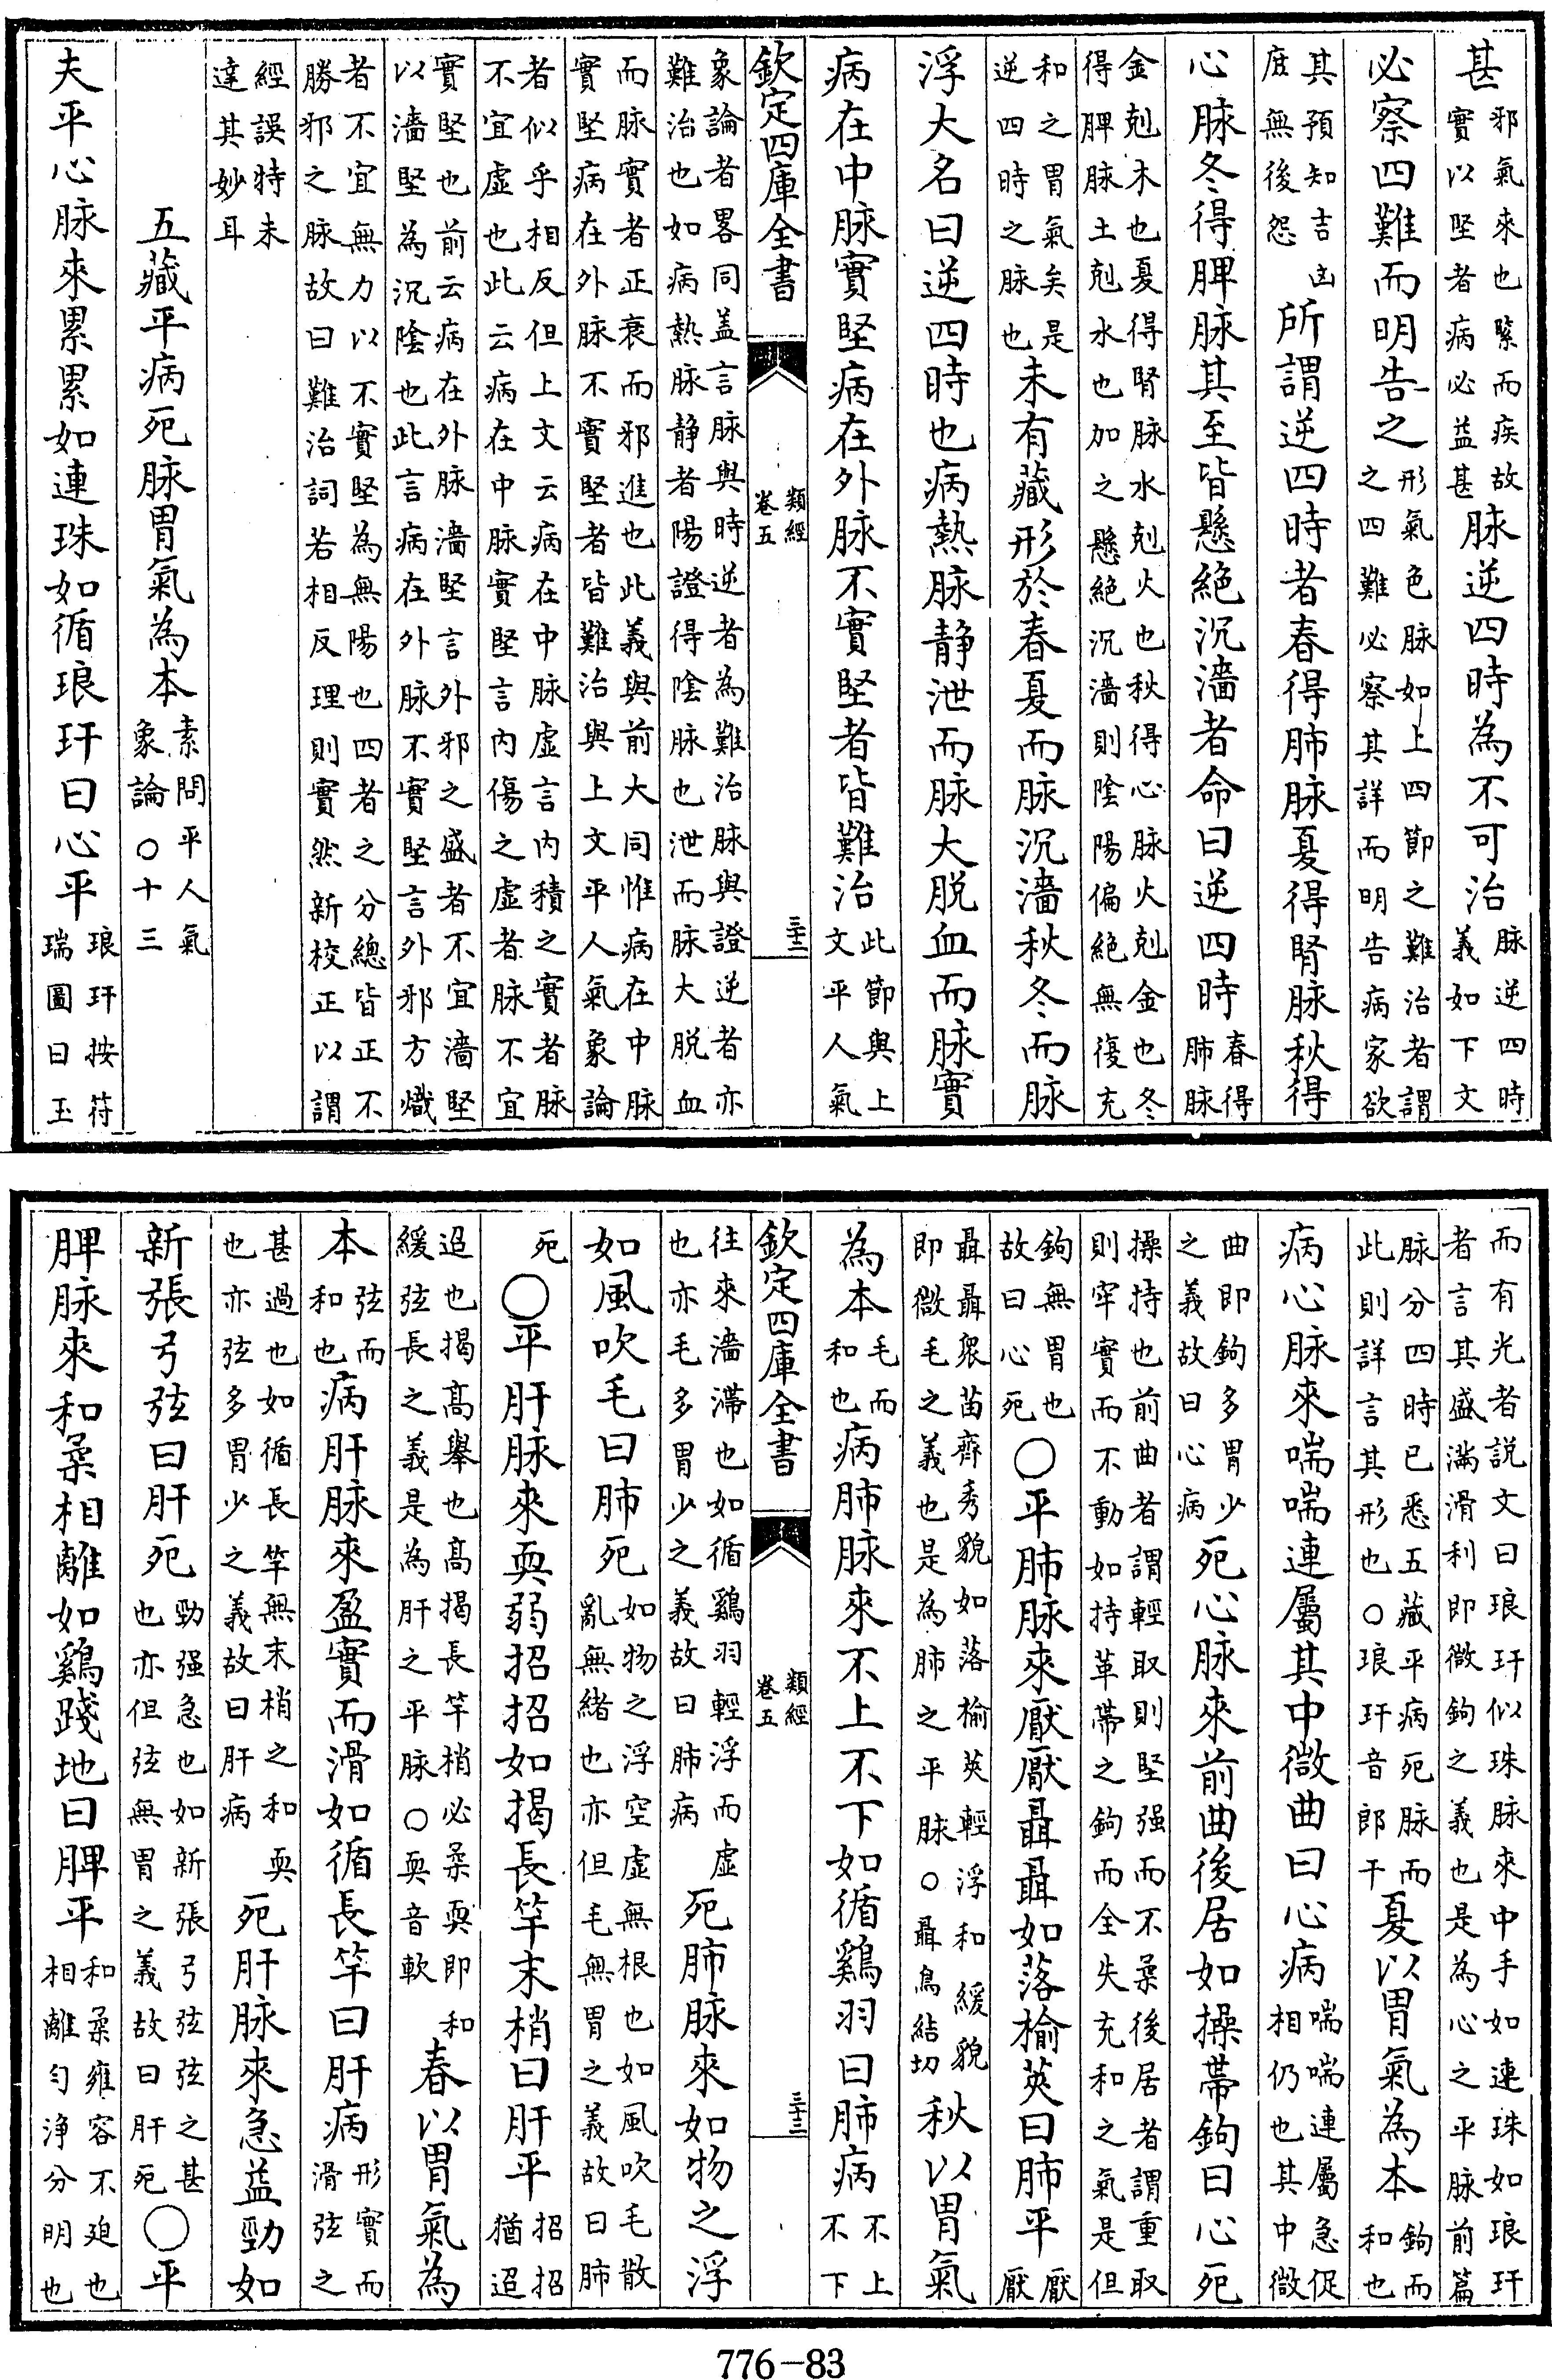 甚邪氣來也緊而疾故實以堅者病必益甚脉逆四時為不可治脉逆四時義如下文
必察四難而明告之形氣色脉如上四節之難治者謂之四難必察其詳而明告病家欲
其預知吉凶庶無後怨所謂逆四時者春得肺脉夏得腎脉秋得
心脉冬得脾脉其至皆懸絕沉濇者命曰逆四時春得肺脉
金剋木也夏得腎脉水剋火也秋得心脉火剋金也冬得脾脉土剋水也加之懸絕沉濇則陰陽偏絕無復充
和之胃氣矣是逆四時之脉也未有藏形於春夏而脉沉濇秋冬而脉
浮大名曰逆四時也病熱脉静泄而脉大脱血而脉實
病在中脉實堅病在外脉不實堅者皆難治此節與上文平人氣
欽定四庫全書 類經卷五 三十二
象論者畧同盖言脉與時逆者為難治脉與證逆者亦難治也如病熱脉静者陽證得陰脉也泄而脉大脱血
而脉實者正衰而邪進也此義與前大同惟病在中脉實堅病在外脉不實堅者皆難治與上文平人氣象論
者似乎相反但上文云病在中脉虚言内積之實者脉不宜虚也此云病在中脉實堅言内傷之虚者脉不宜
實堅也前云病在外脉濇堅言外邪之盛者不宜濇堅以濇堅為沉陰也此言病在外脉不實堅言外邪方熾
者不宜無力以不實堅為無陽也四者之分總皆正不勝邪之脉故曰難治詞若相反理則實然新校正以謂
經誤特未達其妙耳
五藏平病死脉胃氣為本素問平人氣象論○十三
夫平心脉來累累如連珠如循琅玕曰心平琅玕按符瑞圖曰玉
而有光者説文曰琅玕似珠脉來中手如連珠如琅玕者言其盛滿滑利即微鉤之義也是為心之平脉前篇
脉分四時已悉五藏平病死脉而此則詳言其形也○琅玕音郎干夏以胃氣為本鉤而和也
病心脉來喘喘連屬其中微曲曰心病喘喘連屬急促相仍也其中微
曲即鉤多胃少之義故曰心病死心脉來前曲後居如操帶鉤曰心死
操持也前曲者謂輕取則堅强而不柔後居者謂重取則牢實而不動如持革帶之鉤而全失充和之氣是但
鉤無胃也故曰心死○平肺脉來厭厭聶聶如落榆莢曰肺平厭厭
聶聶衆苗齊秀貌如落榆莢輕浮和緩貌即微毛之義也是為肺之平脉○聶鳥結切秋以胃氣
為本毛而和也病肺脉來不上不下如循鷄羽曰肺病不上不下
欽定四庫全書 類經卷五 三十三
往來濇滯也如循鷄羽輕浮而虚也亦毛多胃少之義故曰肺病死肺脉來如物之浮
如風吹毛曰肺死如物之浮空虚無根也如風吹毛散亂無緒也亦但毛無胃之義故曰肺
死○平肝脉來耎弱招招如揭長竿末梢曰肝平招招猶迢
迢也揭高舉也高揭長竿梢必柔耎即和緩弦長之義是為肝之平脉○耎音軟春以胃氣為
本弦而和也病肝脉來盈實而滑如循長竿曰肝病形實而滑弦之
甚過也如循長竿無末梢之和耎也亦弦多胃少之義故曰肝病死肝脉來急益勁如
新張弓弦曰肝死勁强急也如新張弓弦弦之甚也亦但弦無胃之義故曰肝死○平
脾脉來和柔相離如鷄踐地曰脾平和柔雍容不迫也相離匀淨分明也
776-83